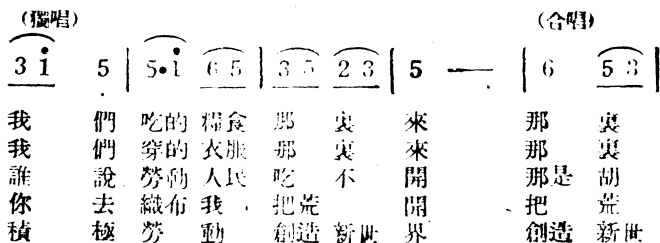 (獨唱) (合唱)
3 i 5 | 5•i 6 5 | 3 5 2 3 | 5 — | 6 5 3 |
我 們 吃的 糧食 那 裏 來 那 裏
我 們 穿的 衣服 那 裏 來 那 裏
誰 說 勞動 人民 吃 不 開 那是 胡
你 去 織布 我 把荒 開 把 荒
積 極 勞 動 創造 新世 界 創造 新世